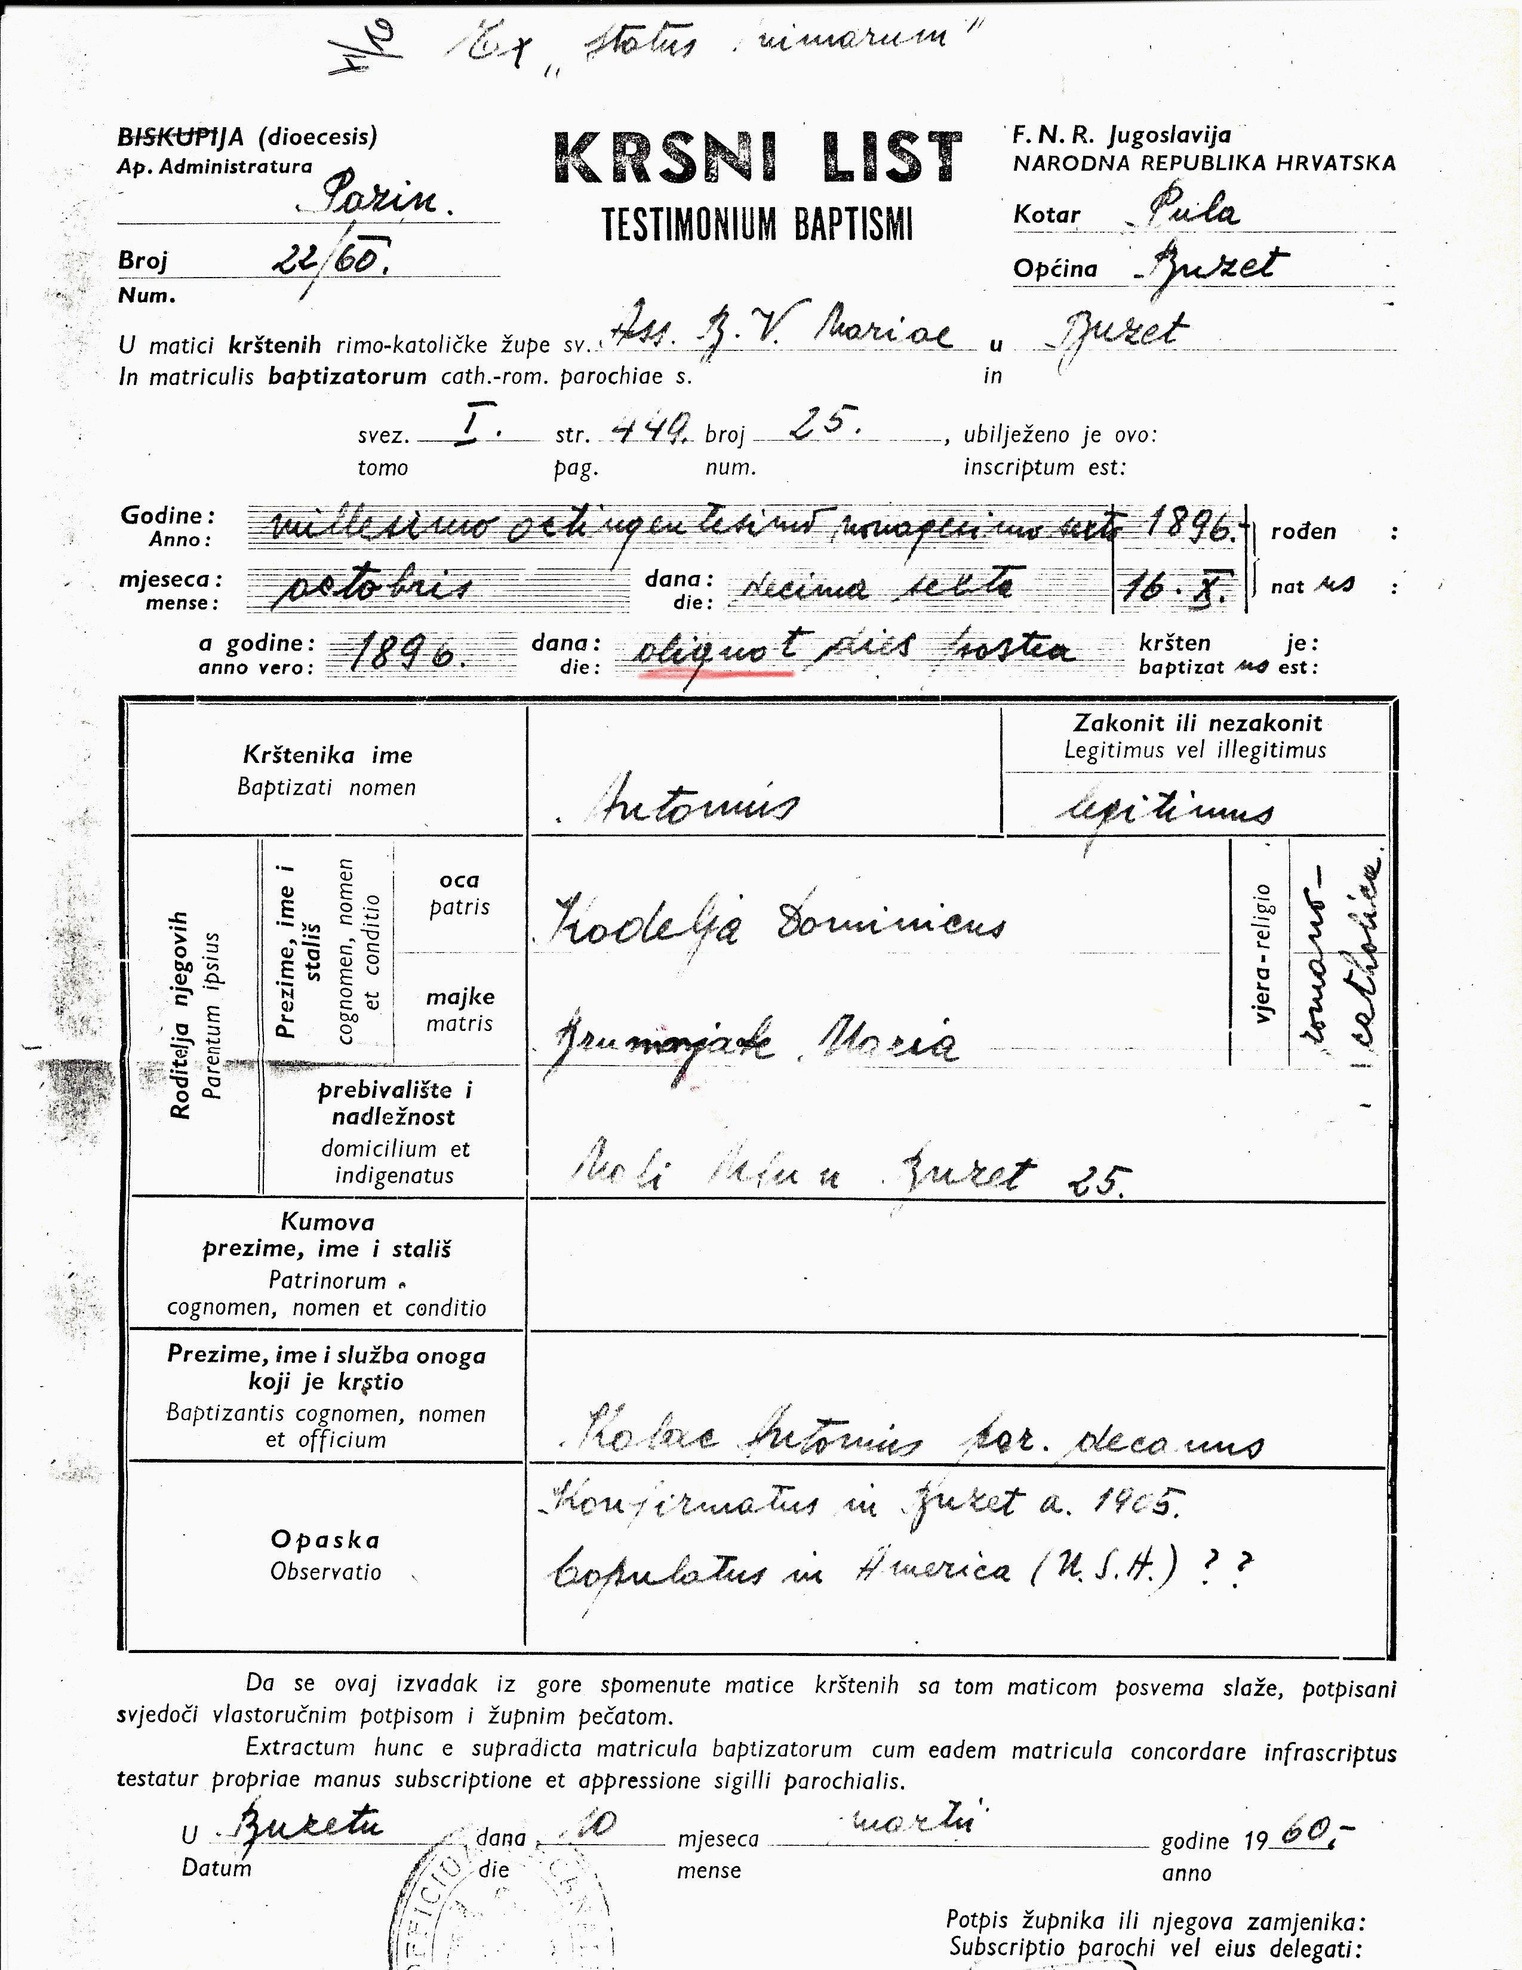 Ex „Status Animarum"
BISKUPIJA (dioecesis)
Ap. Administratura
Pazin.
Broj 22/60.
Num.
KRSNI LIST
TESTIMONIUM BAPTISMI
F. N. R. Jugoslavija
NARODNA REPUBLIKA HRVATSKA
Kotar Pula
Općina Buzet
U matici krštenih rimo-katoličke župe sv. Ass. B. V. Mariae u Buzet
In matriculis baptizatorum cath.-rom. parochiae s. in
svez. I. str. 449. broj 25., ubilježeno je ovo:
tomo pag. num. inscriptum est:
Godine: millesimo octingentesimo nonagesimo sexto 1896. rođen :
Anno:
mjeseca: octobris dana: decima sexta 16. X.
mense: die: nat us :
a godine: 1896. dana: aliquot dies postea kršten je:
anno vero: die: baptizat us est:
Krštenika ime
Baptizati nomen
Antonius
Zakonit ili nezakonit
Legitimus vel illegitimus
legitimus
Roditelja njegovih
Parentum ipsius
Prezime, ime i stališ
cognomen, nomen et conditio
oca
patris
Kodelja Dominicus
majke
matris
Maria
vjera-religio
romano-catholica.
prebivalište i
nadležnost
domicilium et
indigenatus
Mali Mlun Buzet 25.
Kumova
prezime, ime i stališ
Patrinorum
cognomen, nomen et conditio
Prezime, ime i služba onoga
koji je krstio
Baptizantis cognomen, nomen
et officium
Kalac Antonius par. decanus
Opaska
Observatio
Konfirmatus in Buzet a. 1905.
Copulatus in America (U.S.A.) ??
Da se ovaj izvadak iz gore spomenute matice krštenih sa tom maticom posvema slaže, potpisani
svjedoči vlastoručnim potpisom i župnim pečatom.
Extractum hunc e supradicta matricula baptizatorum cum eadem matricula concordare infrascriptus
testatur propriae manus subscriptione et appressione sigilli parochialis.
U Buzetu dana 10 mjeseca martii godine 19 60,-
Datum die mense anno
Potpis župnika ili njegova zamjenika:
Subscriptio parochi vel eius delegati: